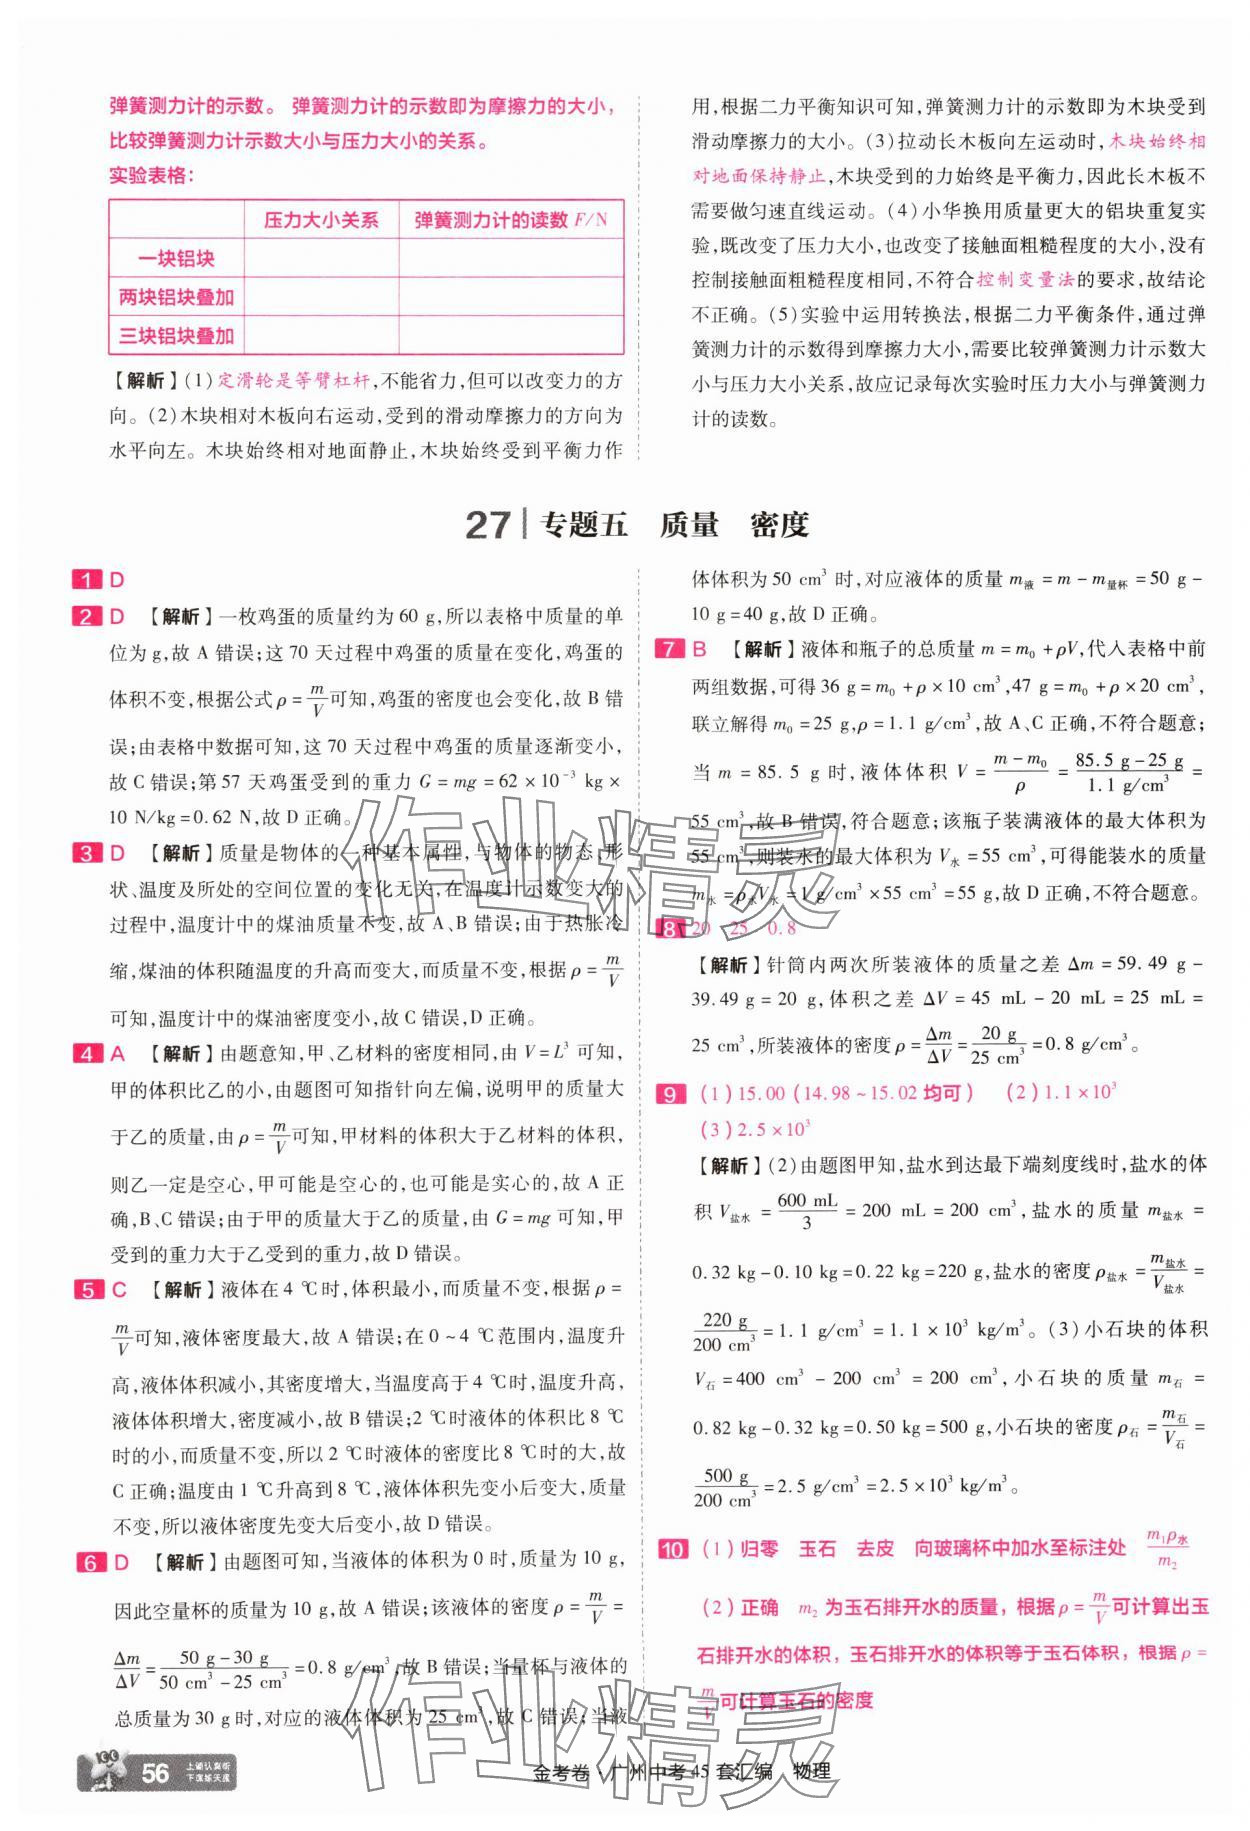 弹簧测力计的示数。 弹簧测力计的示数即为摩擦力的大小，
比较弹簧测力计示数大小与压力大小的关系。
实验表格：
压力大小关系 弹簧测力计的读数 F/N
一块铝块
两块铝块叠加
三块铝块叠加
【解析】(1)定滑轮是等臂杠杆，不能省力，但可以改变力的方
向。(2)木块相对木板向右运动，受到的滑动摩擦力的方向为
水平向左。木块始终相对地面静止，木块始终受到平衡力作
用，根据二力平衡知识可知，弹簧测力计的示数即为木块受到
滑动摩擦力的大小。(3)拉动长木板向左运动时，木块始终相
对地面保持静止，木块受到的力始终是平衡力，因此长木板不
需要做匀速直线运动。(4)小华换用质量更大的铝块重复实
验，既改变了压力大小，也改变了接触面粗糙程度的大小，没有
控制接触面粗糙程度相同，不符合控制变量法的要求，故结论
不正确。(5)实验中运用转换法，根据二力平衡条件，通过弹
簧测力计的示数得到摩擦力大小，需要比较弹簧测力计示数大
小与压力大小关系，故应记录每次实验时压力大小与弹簧测力
计的读数。
27 专题五 质量 密度
1 D
2 D 【解析】一枚鸡蛋的质量约为 60 g，所以表格中质量的单
位为 g，故 A 错误；这 70 天过程中鸡蛋的质量在变化，鸡蛋的
体积不变，根据公式 ρ = m/V 可知，鸡蛋的密度也会变化，故 B 错
误；由表格中数据可知，这 70 天过程中鸡蛋的质量逐渐变小，
故 C 错误；第 57 天鸡蛋受到的重力 G = mg = 62 × 10⁻³ kg ×
10 N/kg = 0.62 N，故 D 正确。
3 D 【解析】质量是物体的一种基本属性，与物体的物态、形
状、温度及所处的空间位置的变化无关，在温度计示数变大的
过程中，温度计中的煤油质量不变，故 A、B 错误；由于热胀冷
缩，煤油的体积随温度的升高而变大，而质量不变，根据 ρ = m/V
可知，温度计中的煤油密度变小，故 C 错误，D 正确。
4 A 【解析】由题意知，甲、乙材料的密度相同，由 V = L³ 可知，
甲的体积比乙的小，由题图可知指针向左偏，说明甲的质量大
于乙的质量，由 ρ = m/V 可知，甲材料的体积大于乙材料的体积，
则乙一定是空心，甲可能是空心的，也可能是实心的，故 A 正
确，B、C 错误；由于甲的质量大于乙的质量，由 G = mg 可知，甲
受到的重力大于乙受到的重力，故 D 错误。
5 C 【解析】液体在 4 ℃时，体积最小，而质量不变，根据 ρ =
m/V 可知，液体密度最大，故 A 错误；在 0 ~ 4 ℃范围内，温度升
高，液体体积减小，其密度增大，当温度高于 4 ℃时，温度升高，
液体体积增大，密度减小，故 B 错误；2 ℃时液体的体积比 8 ℃
时的小，而质量不变，所以 2 ℃时液体的密度比 8 ℃时的大，故
C 正确；温度由 1 ℃升高到 8 ℃，液体体积先变小后变大，质量
不变，所以液体密度先变大后变小，故 D 错误。
6 D 【解析】由题图可知，当液体的体积为 0 时，质量为 10 g，
因此空量杯的质量为 10 g，故 A 错误；该液体的密度 ρ = m/V =
Δm/ΔV = (50 g - 30 g)/(50 cm³ - 25 cm³) = 0.8 g/cm³，故 B 错误；当量杯与液体的
总质量为 30 g 时，对应的液体体积为 25 cm³，故 C 错误；当液
体体积为 50 cm³ 时，对应液体的质量 m液 = m - m量杯 = 50 g -
10 g = 40 g，故 D 正确。
7 B 【解析】液体和瓶子的总质量 m = m₀ + ρV，代入表格中前
两组数据，可得 36 g = m₀ + ρ × 10 cm³，47 g = m₀ + ρ × 20 cm³，
联立解得 m₀ = 25 g，ρ = 1.1 g/cm³，故 A、C 正确，不符合题意；
当 m = 85.5 g 时，液体体积 V = (m - m₀)/ρ = (85.5 g - 25 g)/(1.1 g/cm³) =
55 cm³，故 B 错误，符合题意；该瓶子装满液体的最大体积为
55 cm³，则装水的最大体积为 V水 = 55 cm³，可得能装水的质量
m水 = ρ水V水 = 1 g/cm³ × 55 cm³ = 55 g，故 D 正确，不符合题意。
8 20 25 0.8
【解析】针筒内两次所装液体的质量之差 Δm = 59.49 g -
39.49 g = 20 g，体积之差 ΔV = 45 mL - 20 mL = 25 mL =
25 cm³，所装液体的密度 ρ = Δm/ΔV = 20 g/25 cm³ = 0.8 g/cm³。
9 (1)15.00(14.98 ~ 15.02 均可) (2)1.1 × 10³
(3)2.5 × 10³
【解析】(2)由题图甲知，盐水到达最下端刻度线时，盐水的体
积 V盐水 = 600 mL/3 = 200 mL = 200 cm³，盐水的质量 m盐水 =
0.32 kg - 0.10 kg = 0.22 kg = 220 g，盐水的密度 ρ盐水 = m盐水/V盐水 =
220 g/200 cm³ = 1.1 g/cm³ = 1.1 × 10³ kg/m³。(3)小石块的体积
V石 = 400 cm³ - 200 cm³ = 200 cm³，小石块的质量 m石 =
0.82 kg - 0.32 kg = 0.50 kg = 500 g，小石块的密度 ρ石 = m石/V石 =
500 g/200 cm³ = 2.5 g/cm³ = 2.5 × 10³ kg/m³。
10 (1)归零 玉石 去皮 向玻璃杯中加水至标注处 m₁ρ水/m₂
(2)正确 m₂ 为玉石排开水的质量，根据 ρ = m/V 可计算出玉
石排开水的体积，玉石排开水的体积等于玉石体积，根据 ρ =
m/V 可计算玉石的密度
作业精灵
作业精灵
56 上课认真听
下课练天度
金考卷·广州中考 45 套汇编 物理